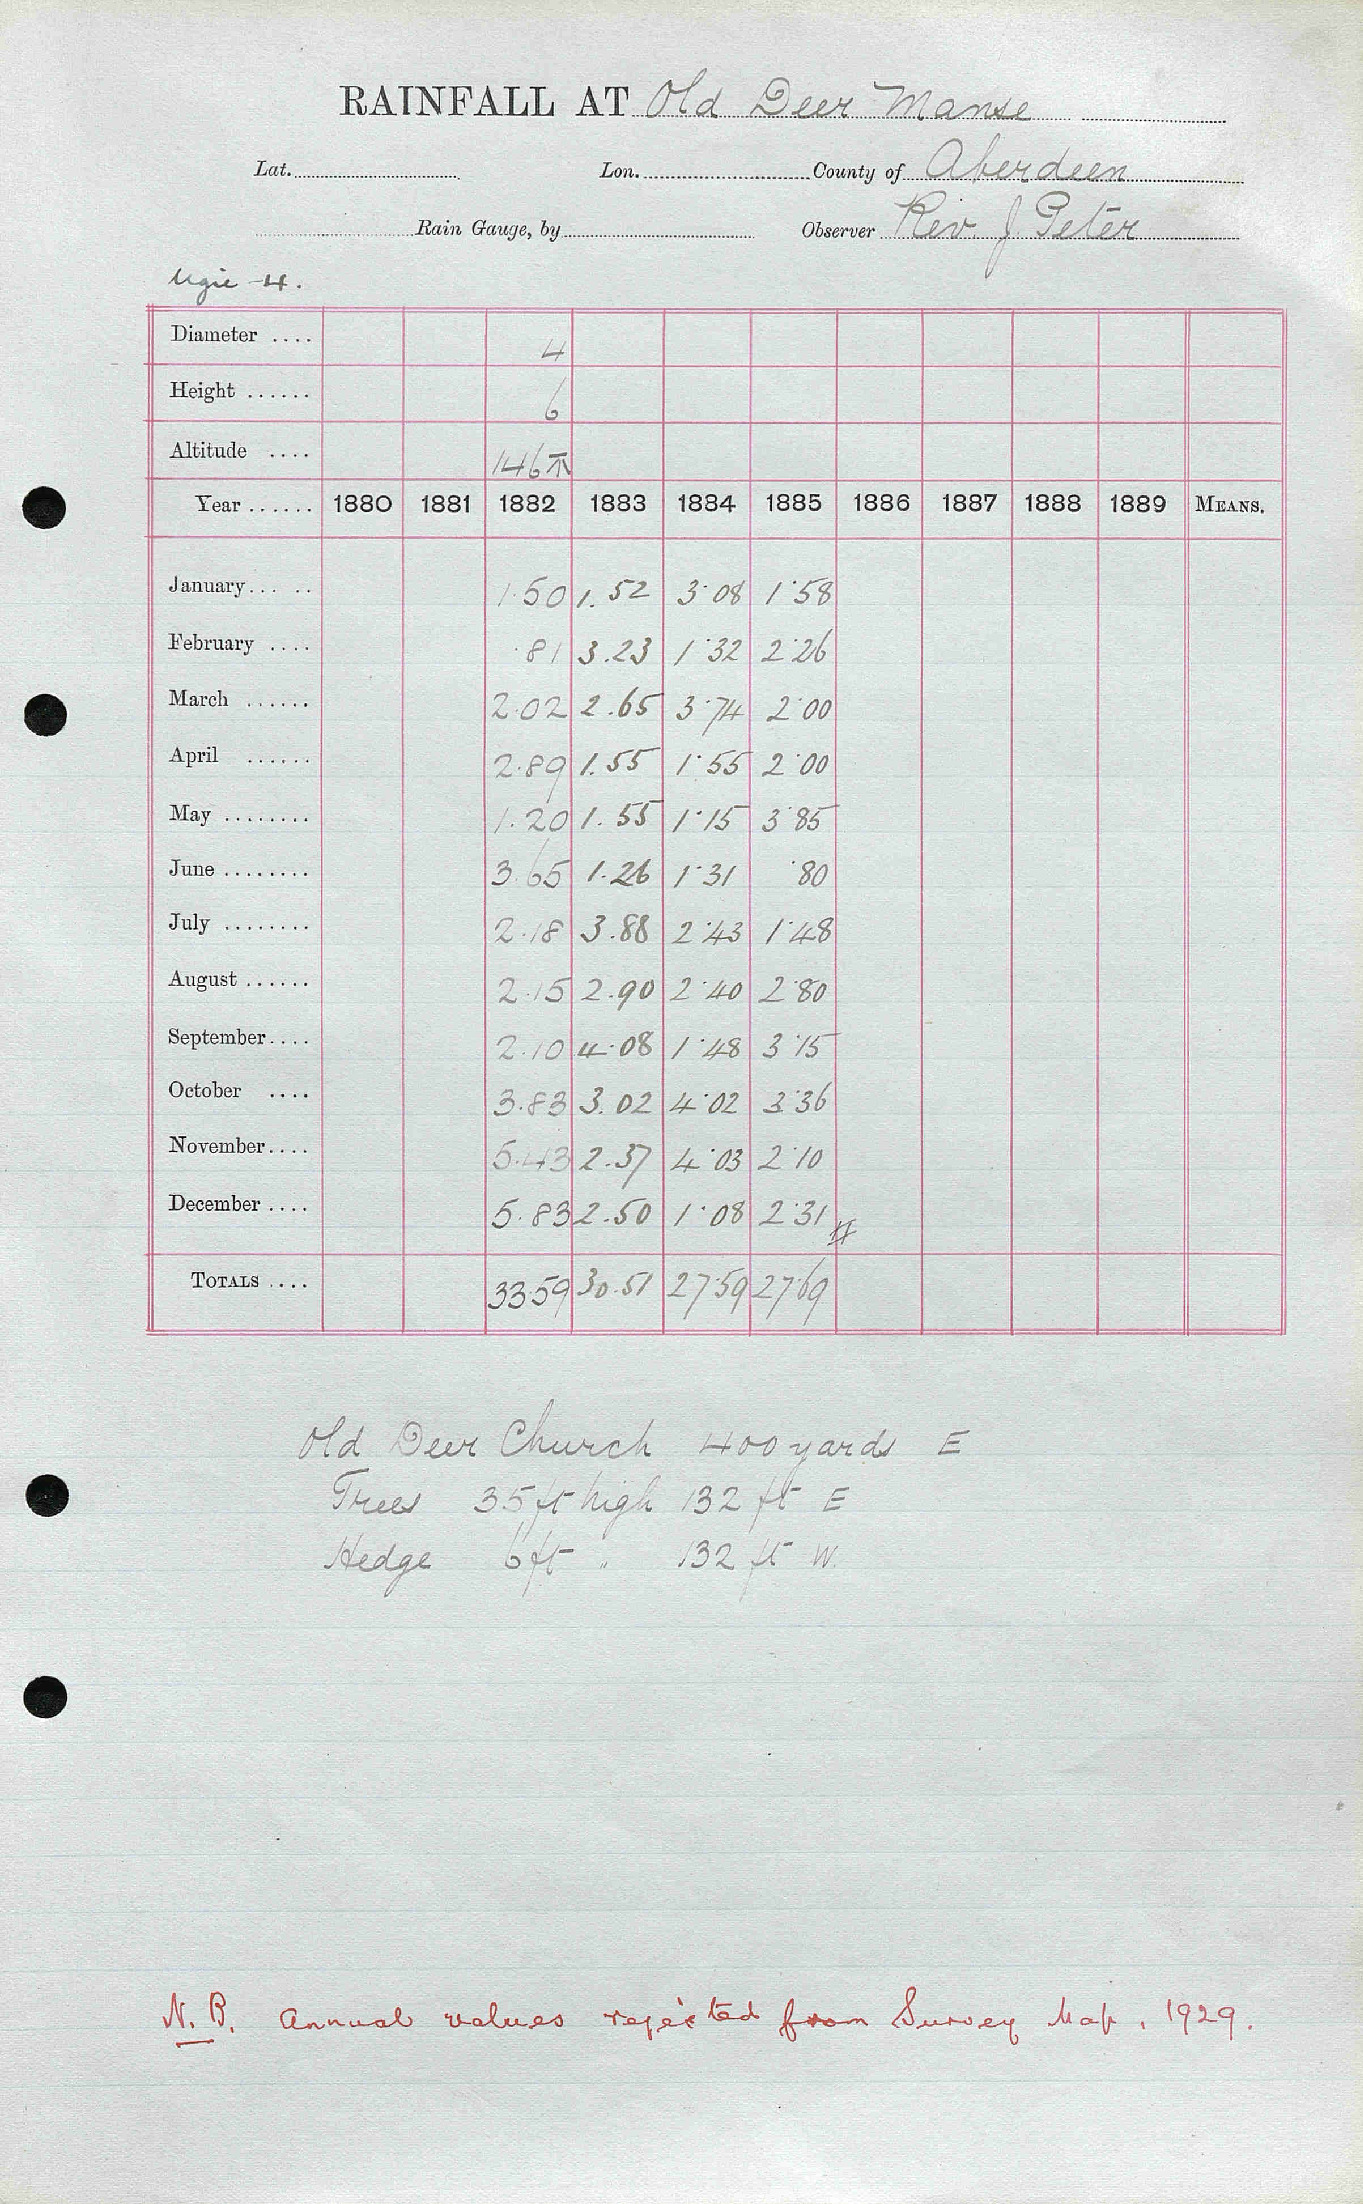 RAINFALL AT Old Deer Manse
Lat. Lon. County of Aberdeen
Rain Gauge, by Observer Rev. J Peter
Ugie 4.
Diameter .... 4
Height ...... 6
Altitude .... 146
Year ...... 1880 1881 1882 1883 1884 1885 1886 1887 1888 1889 MEANS.
January... .. 1.50 1.52 3.08 1.58
February .... .81 3.23 1.32 2.26
March ...... 2.02 2.65 3.74 2.00
April ...... 2.89 1.55 1.55 2.00
May ........ 1.20 1.55 1.15 3.85
June ........ 3.65 1.26 1.31 .80
July ........ 2.18 3.88 2.43 1.48
August ...... 2.15 2.90 2.40 2.80
September.... 2.10 4.08 1.48 3.15
October .... 3.83 3.02 4.02 3.36
November.... 5.43 2.37 4.03 2.10
December .... 5.83 2.50 1.08 2.31
TOTALS .... 33.59 30.51 27.59 27.69
Old Deer Church 400 yards E
Trees 35 ft high 132 ft E
Hedge 6 ft " 132 ft W.
N.B. Annual values rejected from Survey Map, 1929.